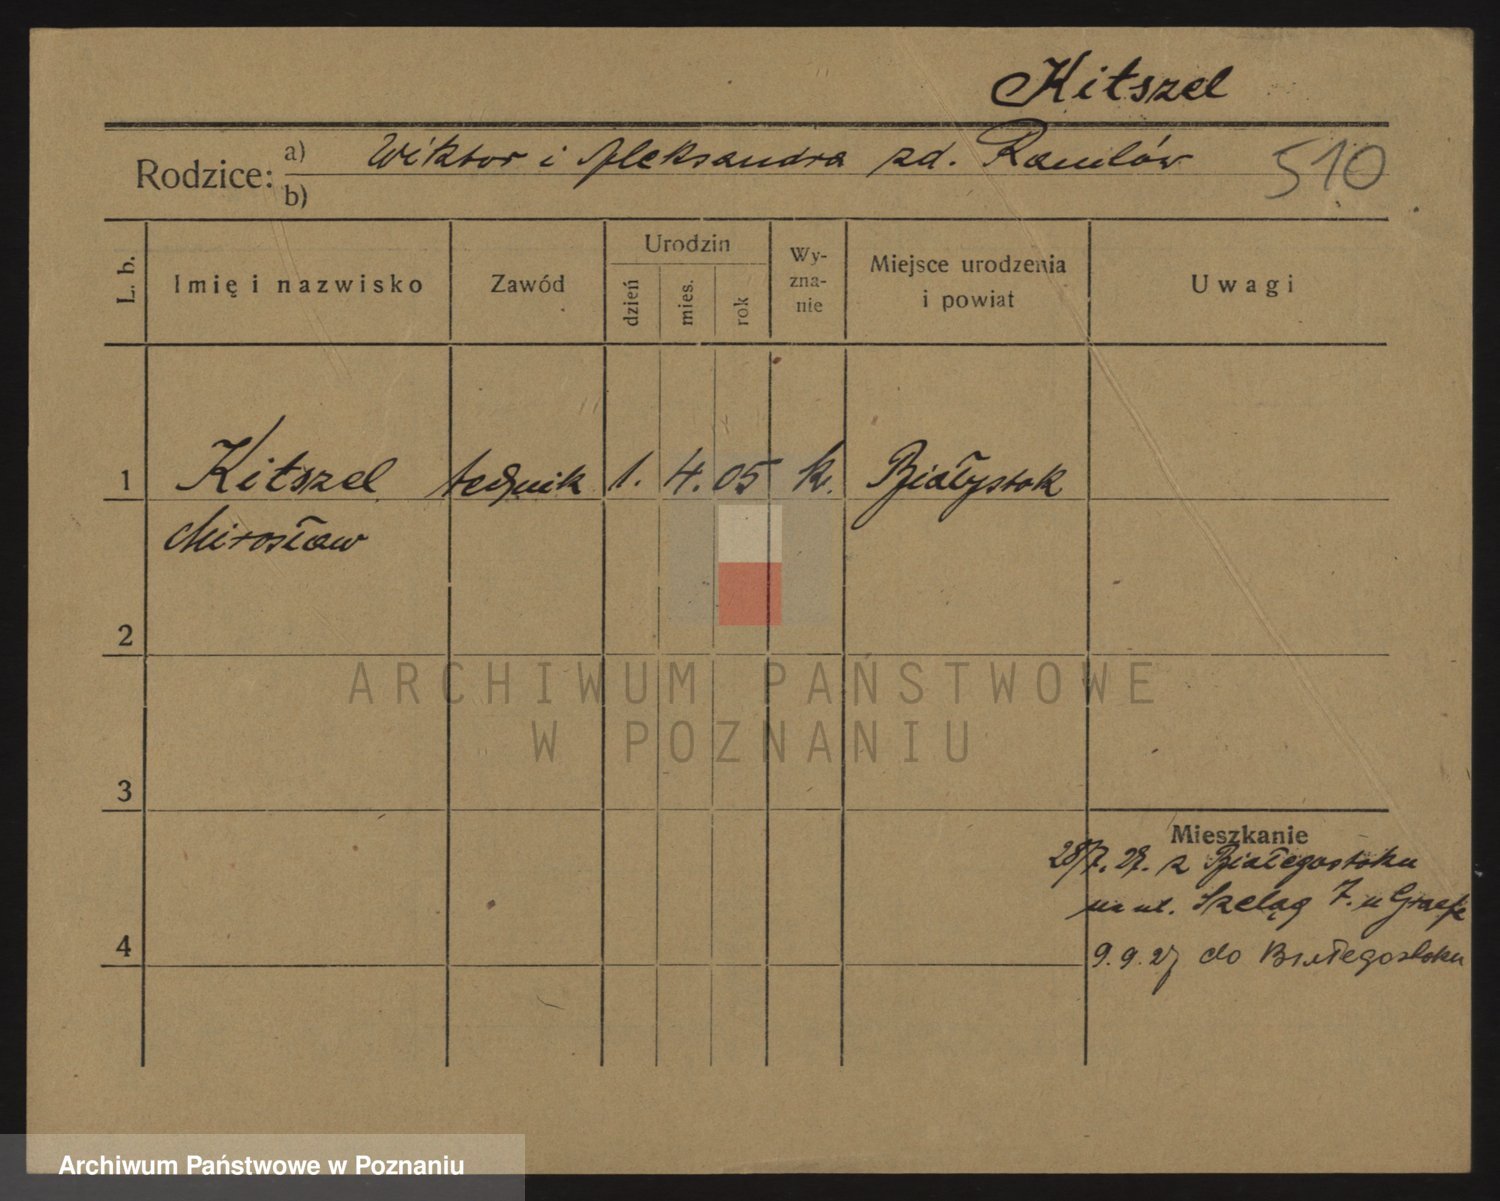 Kitszel
Rodzice: a) Wiktor i Aleksandra zd. Ramlów
b)
510
L. b.
Imię i nazwisko
Zawód
Urodzin
dzień
mies.
rok
Wy-
zna-
nie
Miejsce urodzenia
i powiat
Uwagi
1 Kitszel technik 1. 4. 05 k. Białystok
Mirosław
2
3
4
Mieszkanie
28/7. 27. z Białegostoku
na ul. Szeląg 7. u
9.9.27 do Białegostoku
ARCHIWUM PAŃSTWOWE
W POZNANIU
Archiwum Państwowe w Poznaniu